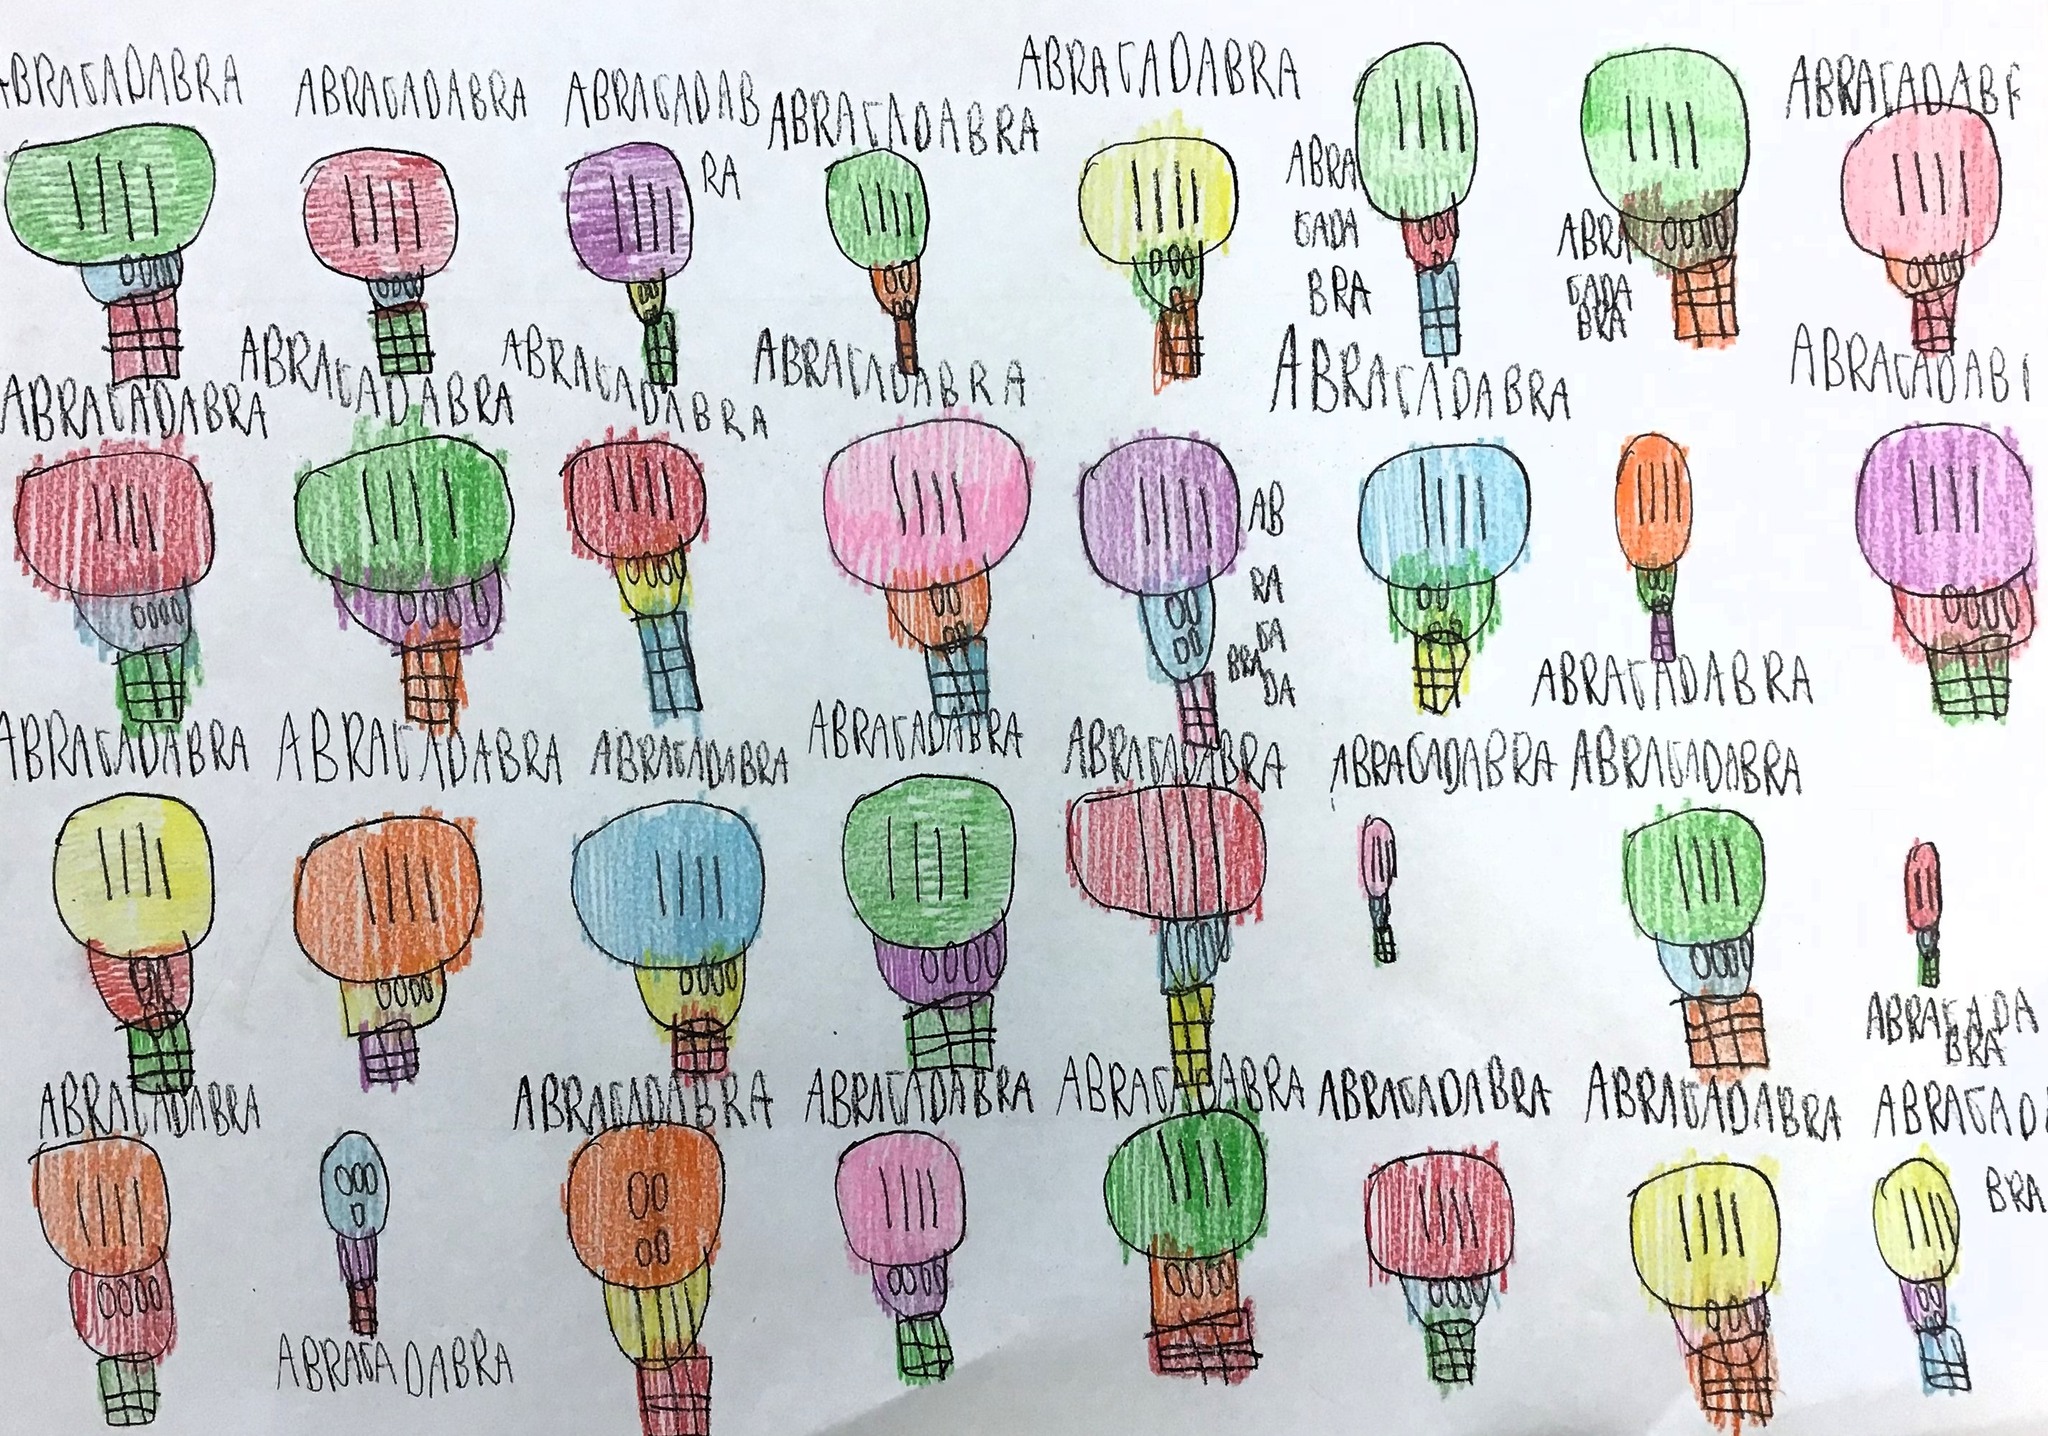 ABRAGADABRA
ABRAGADABRA
ABRAGADAB
RA
ABRAGADABRA
ABRAGADABRA
ABRA
GADA
BRA
ABRA
GADA
BRA
ABRAGADAB
ABRAGADABRA
ABRAGADABRA
ABRAGADABRA
ABRAGADABRA
AB
RA
GA
DA
BRA
ABRAGADABRA
ABRAGADABRA
ABRAGADAB
ABRAGADABRA
ABRAGADABRA
ABRAGADABRA
ABRAGADABRA
ABRAGADABRA
ABRAGADABRA
ABRAGADABRA
ABRAGADA
BRA
ABRAGADABRA
ABRAGADABRA
ABRAGADABRA
ABRAGADABRA
ABRAGADABRA
ABRAGADABRA
ABRAGADABRA
ABRAGADA
BRA